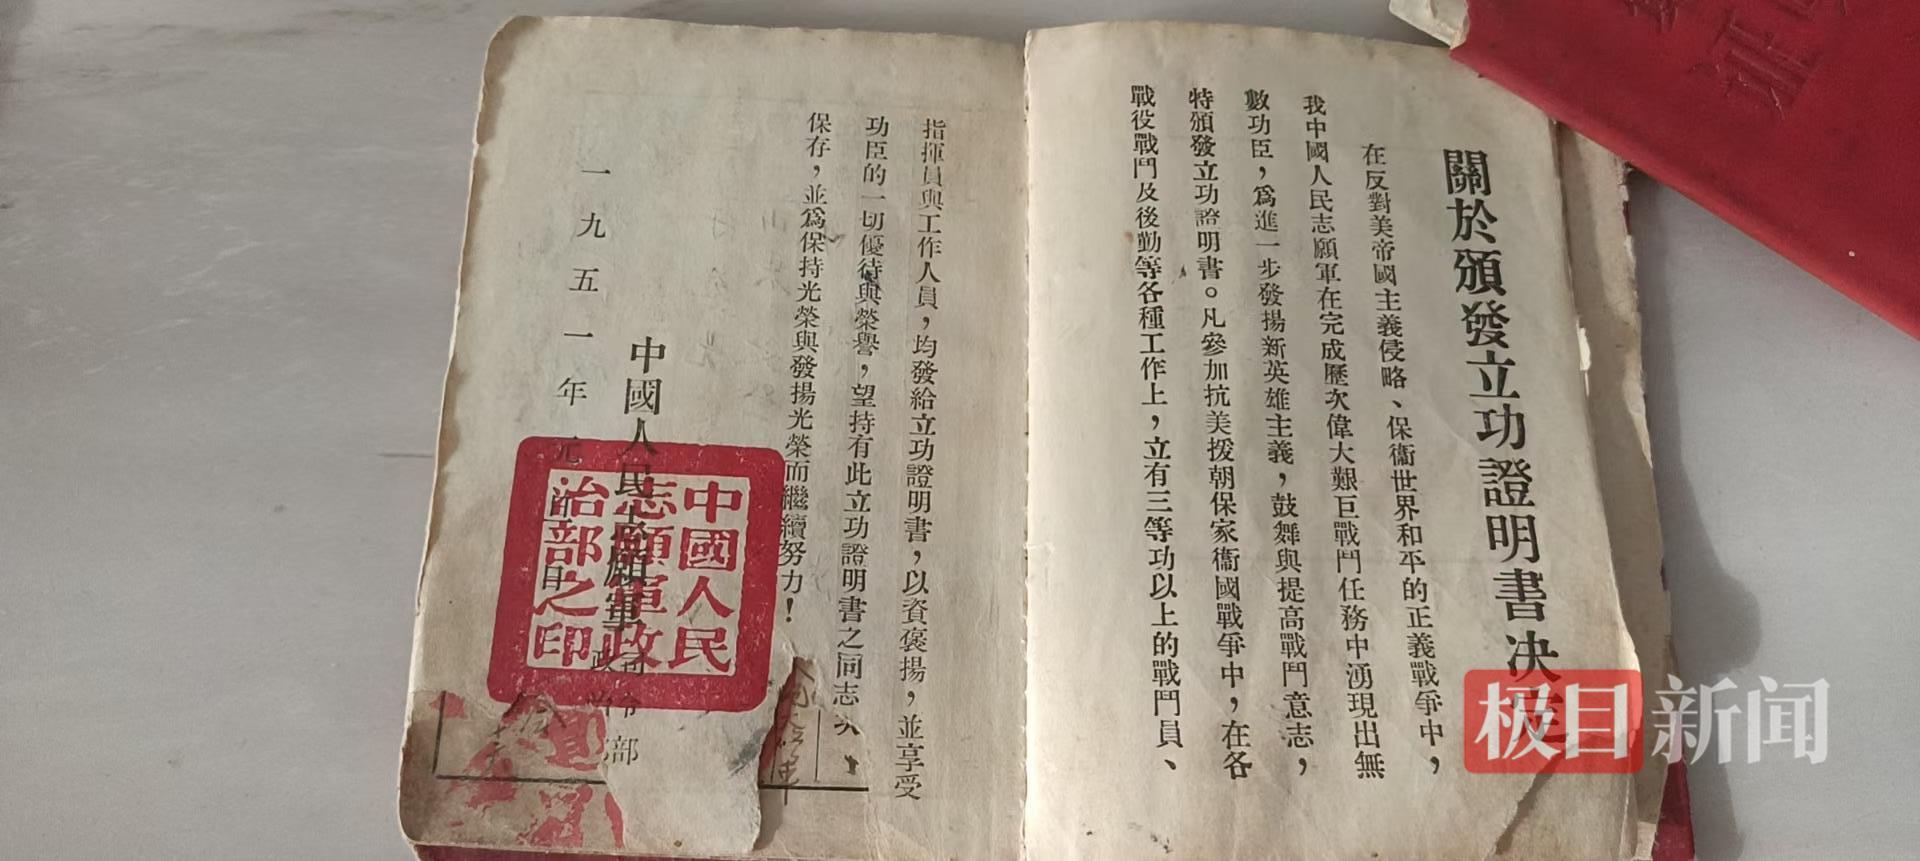 關於頒發立功證明書决定
在反對美帝國主義侵略、保衞世界和平的正義戰爭中，
我中國人民志願軍在完成歷次偉大艱巨戰鬥任務中湧現出無
數功臣，爲進一步發揚新英雄主義，鼓舞與提高戰鬥意志，
特頒發立功證明書。凡參加抗美援朝保家衞國戰爭中，在各
戰役戰鬥及後勤等各種工作上，立有三等功以上的戰鬥員、
指揮員與工作人員，均發給立功證明書，以資褒揚，並享受
功臣的一切優待與榮譽，望持有此立功證明書之同志
保存，並爲保持光榮與發揚光榮而繼續努力！
中國人民志願軍
司令部
政
部
一九五一年元月 日
中國人民
志願軍政
治部之印
极目新闻